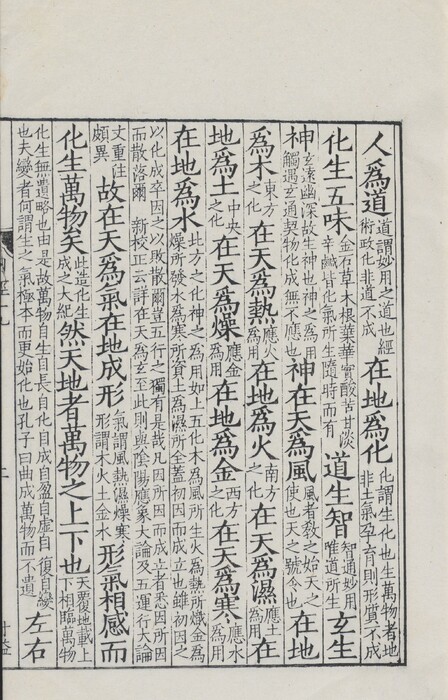 人爲道道謂妙用之道也經術政化非道不成在地爲化化謂生化也生萬物者地非土氣孕育則形質不成
化生五味金石草木根葉華實酸苦甘淡辛鹹皆化氣所生隨時而有道生智智通妙用唯道所生玄生
神玄遠幽深故生神也神之爲用觸遇玄通契物化成無不應也神在天爲風風者敎之始天之使也天之號令也在地
爲木東方之化在天爲熱應火爲用在地爲火南方之化在天爲濕應土爲用在
地爲土中央之化在天爲燥應金爲用在地爲金西方之化在天爲寒應水爲用
在地爲水北方之化神之爲用如上五化木爲風所生火爲熱所熾金爲燥所發水爲寒所資土爲濕所全蓋初因而成立也雖初因之
以化成卒因之以敗散爾豈五行之獨有是哉凡因所因而成立者悉因所因而散落爾 新校正云詳在天爲玄至此則與陰陽應象大論及五運行大論
文重注頗異故在天爲氣在地成形氣謂風熱濕燥寒形謂木火土金水形氣相感而
化生萬物矣此造化生成之大紀然天地者萬物之上下也天覆地載上下相臨萬物
化生無遺略也由是故萬物自生自長自化自成自盈自虛自復自變也夫變者何謂生之氣極本而更始化也孔子曰曲成萬物而不遺左右